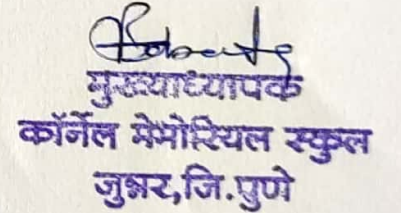 मुख्याध्यापक
कॉर्नेल मेमोरियल स्कुल
जुन्नर,जि.पुणे